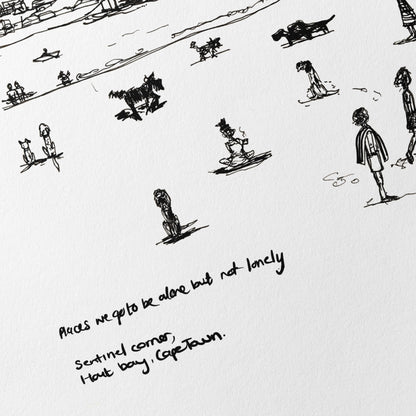 Places we go to be alone but not lonely
Sentinel corner,
Hout bay, Cape Town.